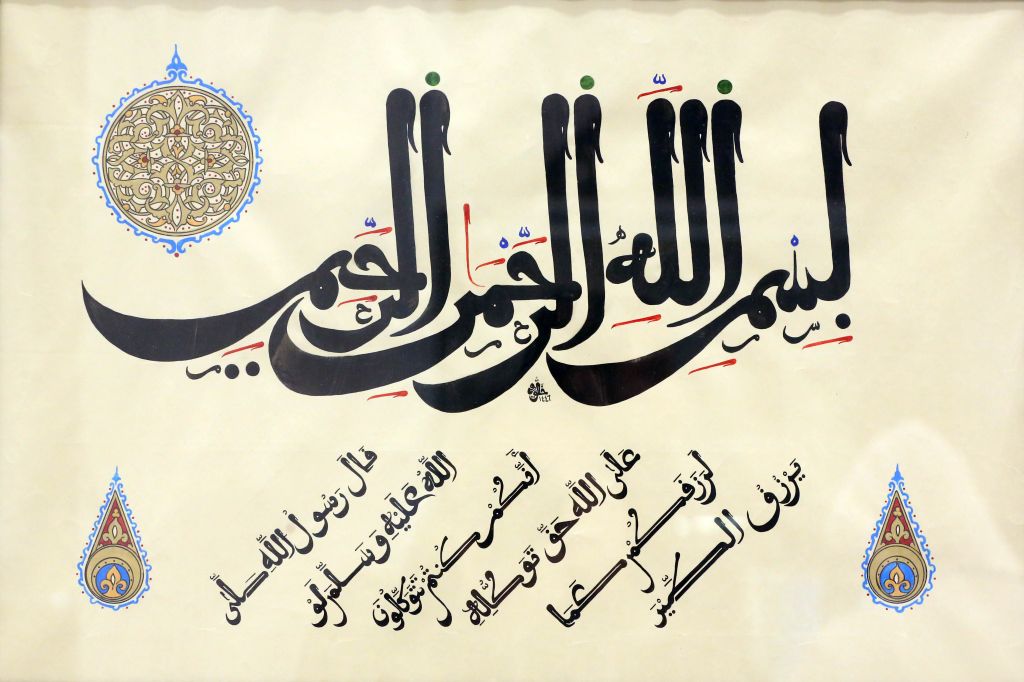 بِسْمِ اللَّهِ الرَّحْمَٰنِ الرَّحِيمِ
قَالَ رَسُولُ اللَّهِ صَلَّى
اللَّهُ عَلَيْهِ وَسَلَّمَ لَوْ
أَنَّكُمْ كُنْتُمْ تَتَوَكَّلُونَ
عَلَى اللَّهِ حَقَّ تَوَكُّلِهِ
لَرَزَقَكُمْ كَمَا
يَرْزُقُ الطَّيْرَ